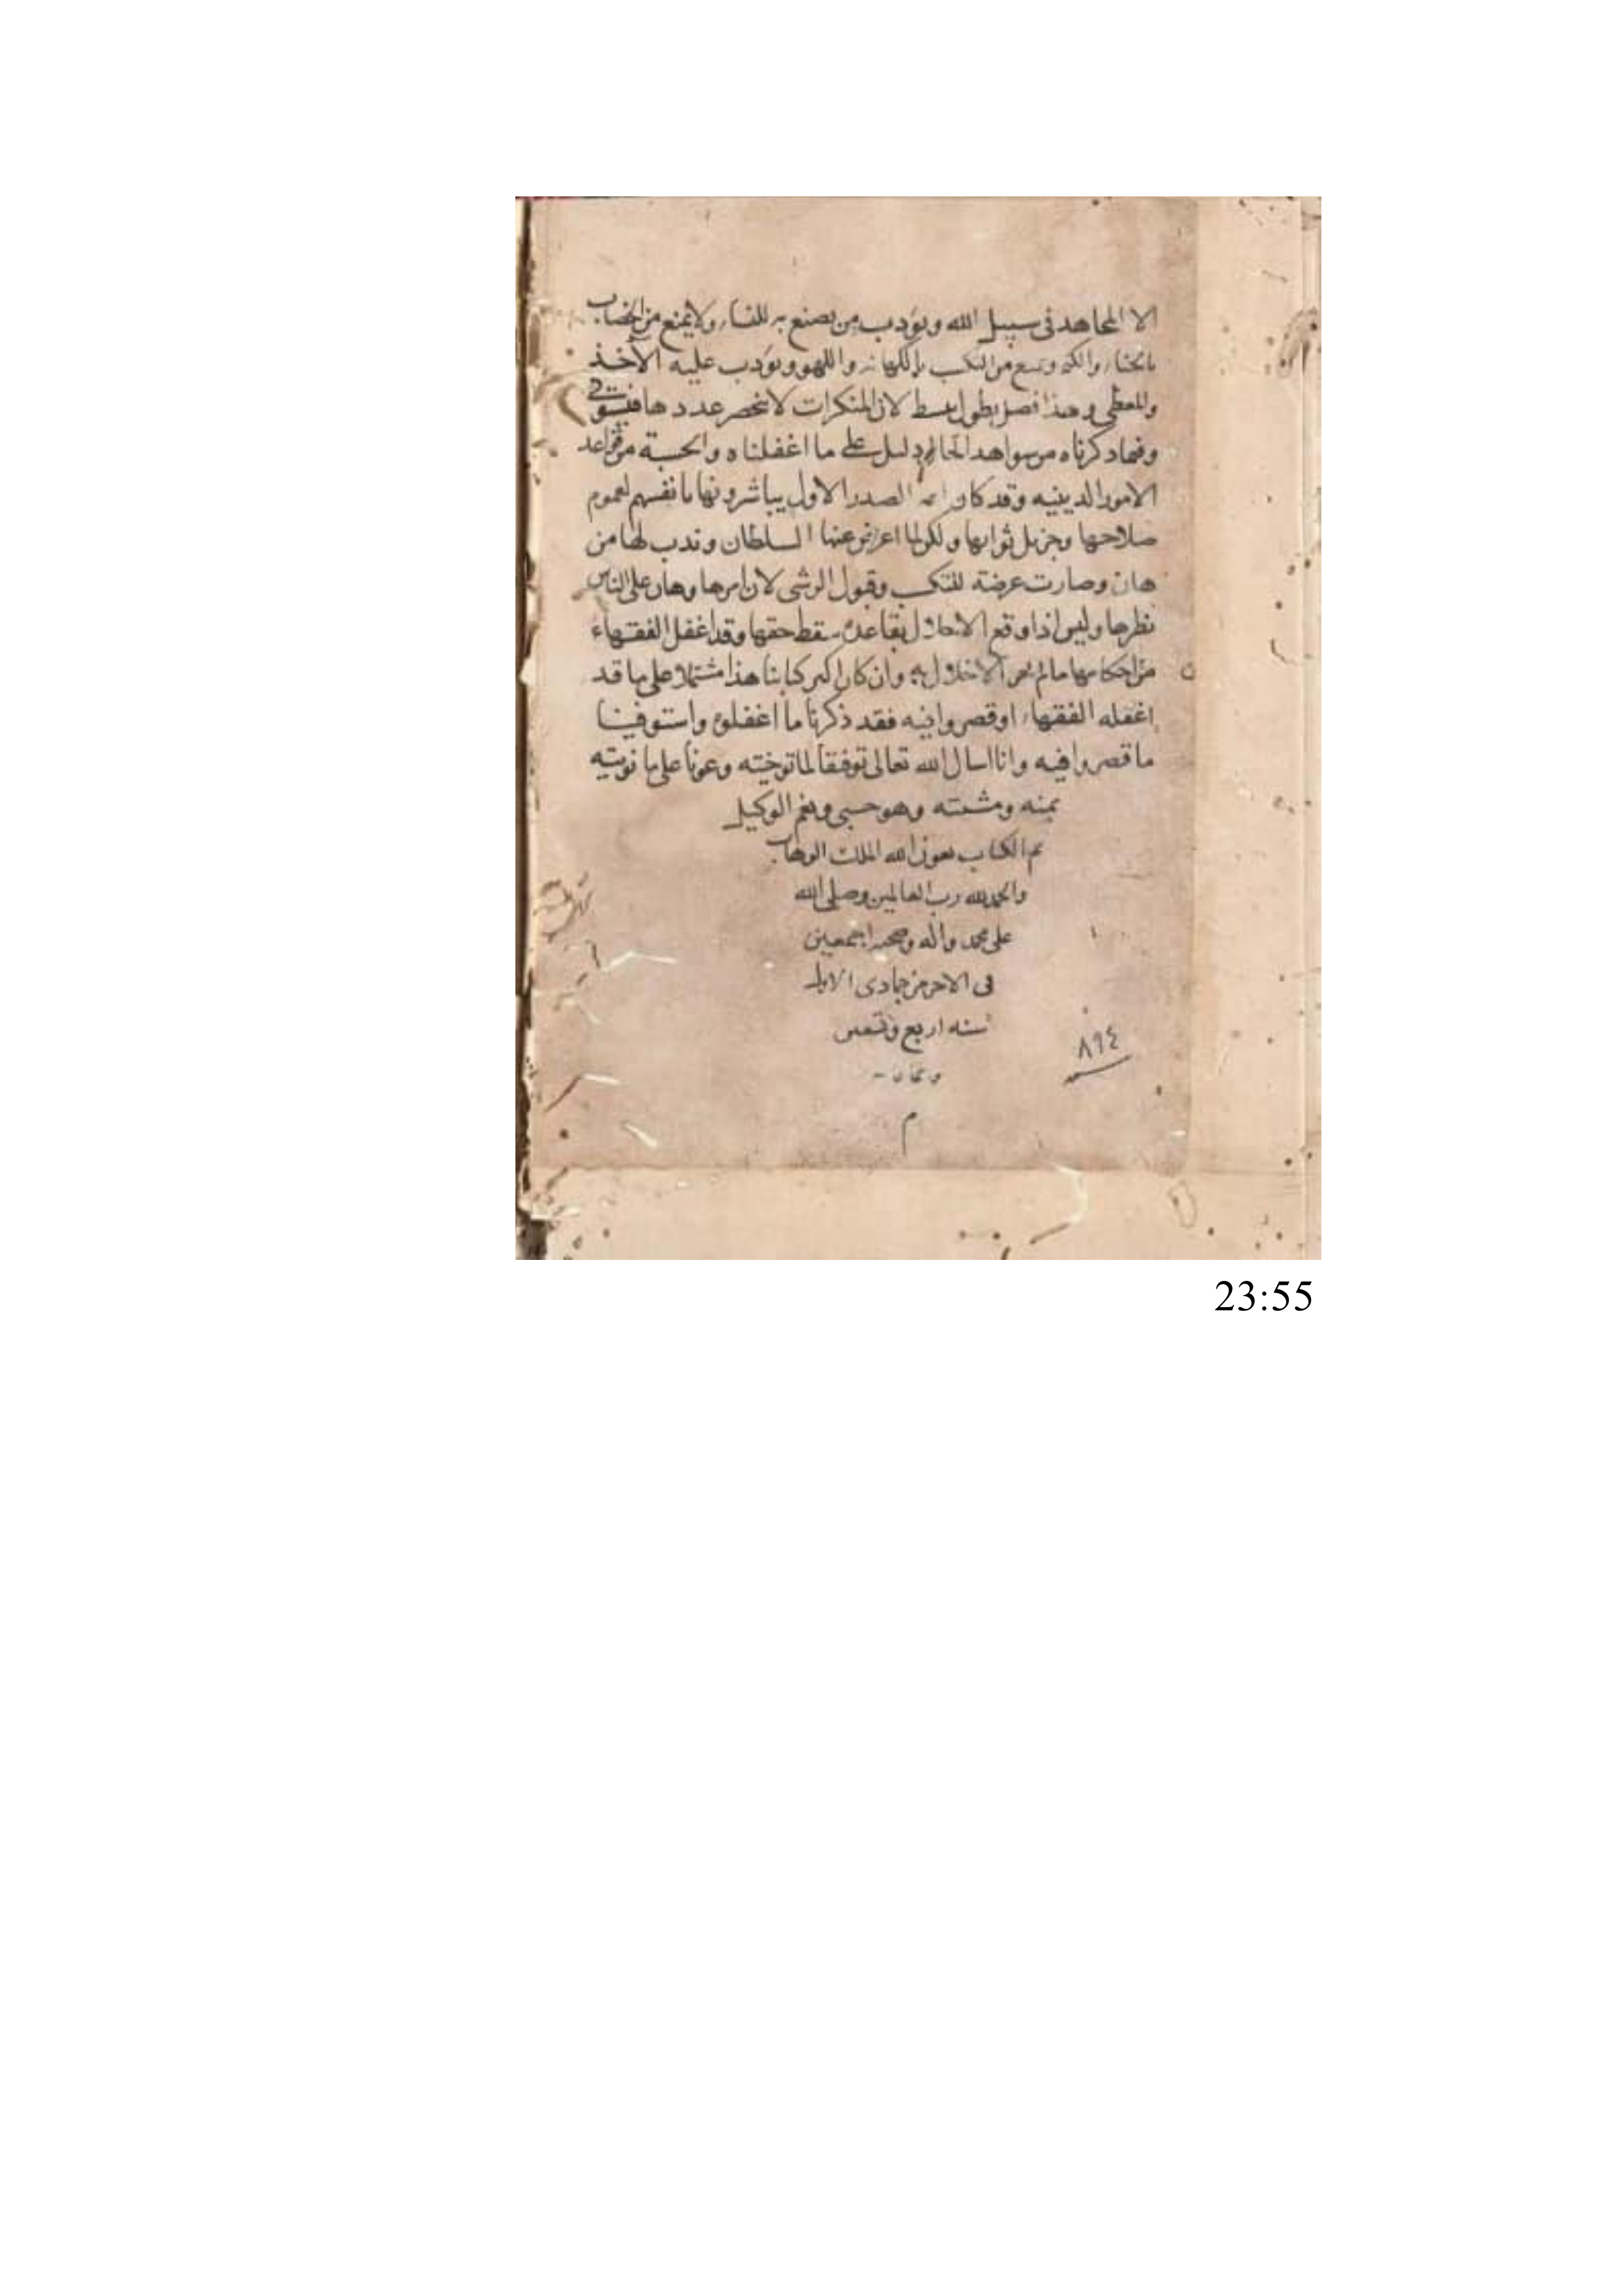 الا المجاهد فى سبيل الله ويؤدب من يصنع به للنساء ولا يمنع من الخضاب
بالحناء والكتم ويمنع من التكسب بالكهانه واللهو ويؤدب عليه الآخذ
والمعطى وهذا فصل يطول ان يبسط لان المنكرات لا ينحصر عددها فيستوفى
وفيما ذكرناه من شواهد الحال دليل على ما اغفلناه والحسبة من قواعد
الامور الدينيه وقد كان ايمه الصدر الاول يباشرونها بانفسهم لعموم
صلاحها وجزيل ثوابها ولكن لما اعرض عنها السلطان وندب لها من
هان وصارت عرضة للتكسب وقبول الرشى لان امرها وهان على الناس
نظرها وليس اذا وقع الاخلال بقاعدة سقط حقها وقد اغفل الفقهاء
من احكامها ما لم يجز الاخلال به وان كان اكبر كتابنا هذا مشتملا على ما قد
اغفله الفقهاء او قصروا فيه فقد ذكرنا ما اغفلوه واستوفينا
ما قصروا فيه وانا اسال الله تعالى توفيقا لما توخيته وعونا على ما نويته
بمنه ومشيته وهو حسبى ونعم الوكيل
تم الكتاب بعون الله الملك الوهاب
والحمد لله رب العالمين وصلى الله
على محمد واله وصحبه اجمعين
فى الاخر من جمادى الاول
سنه اربع وتسعين
وثمان
م
٨٩٤
23:55